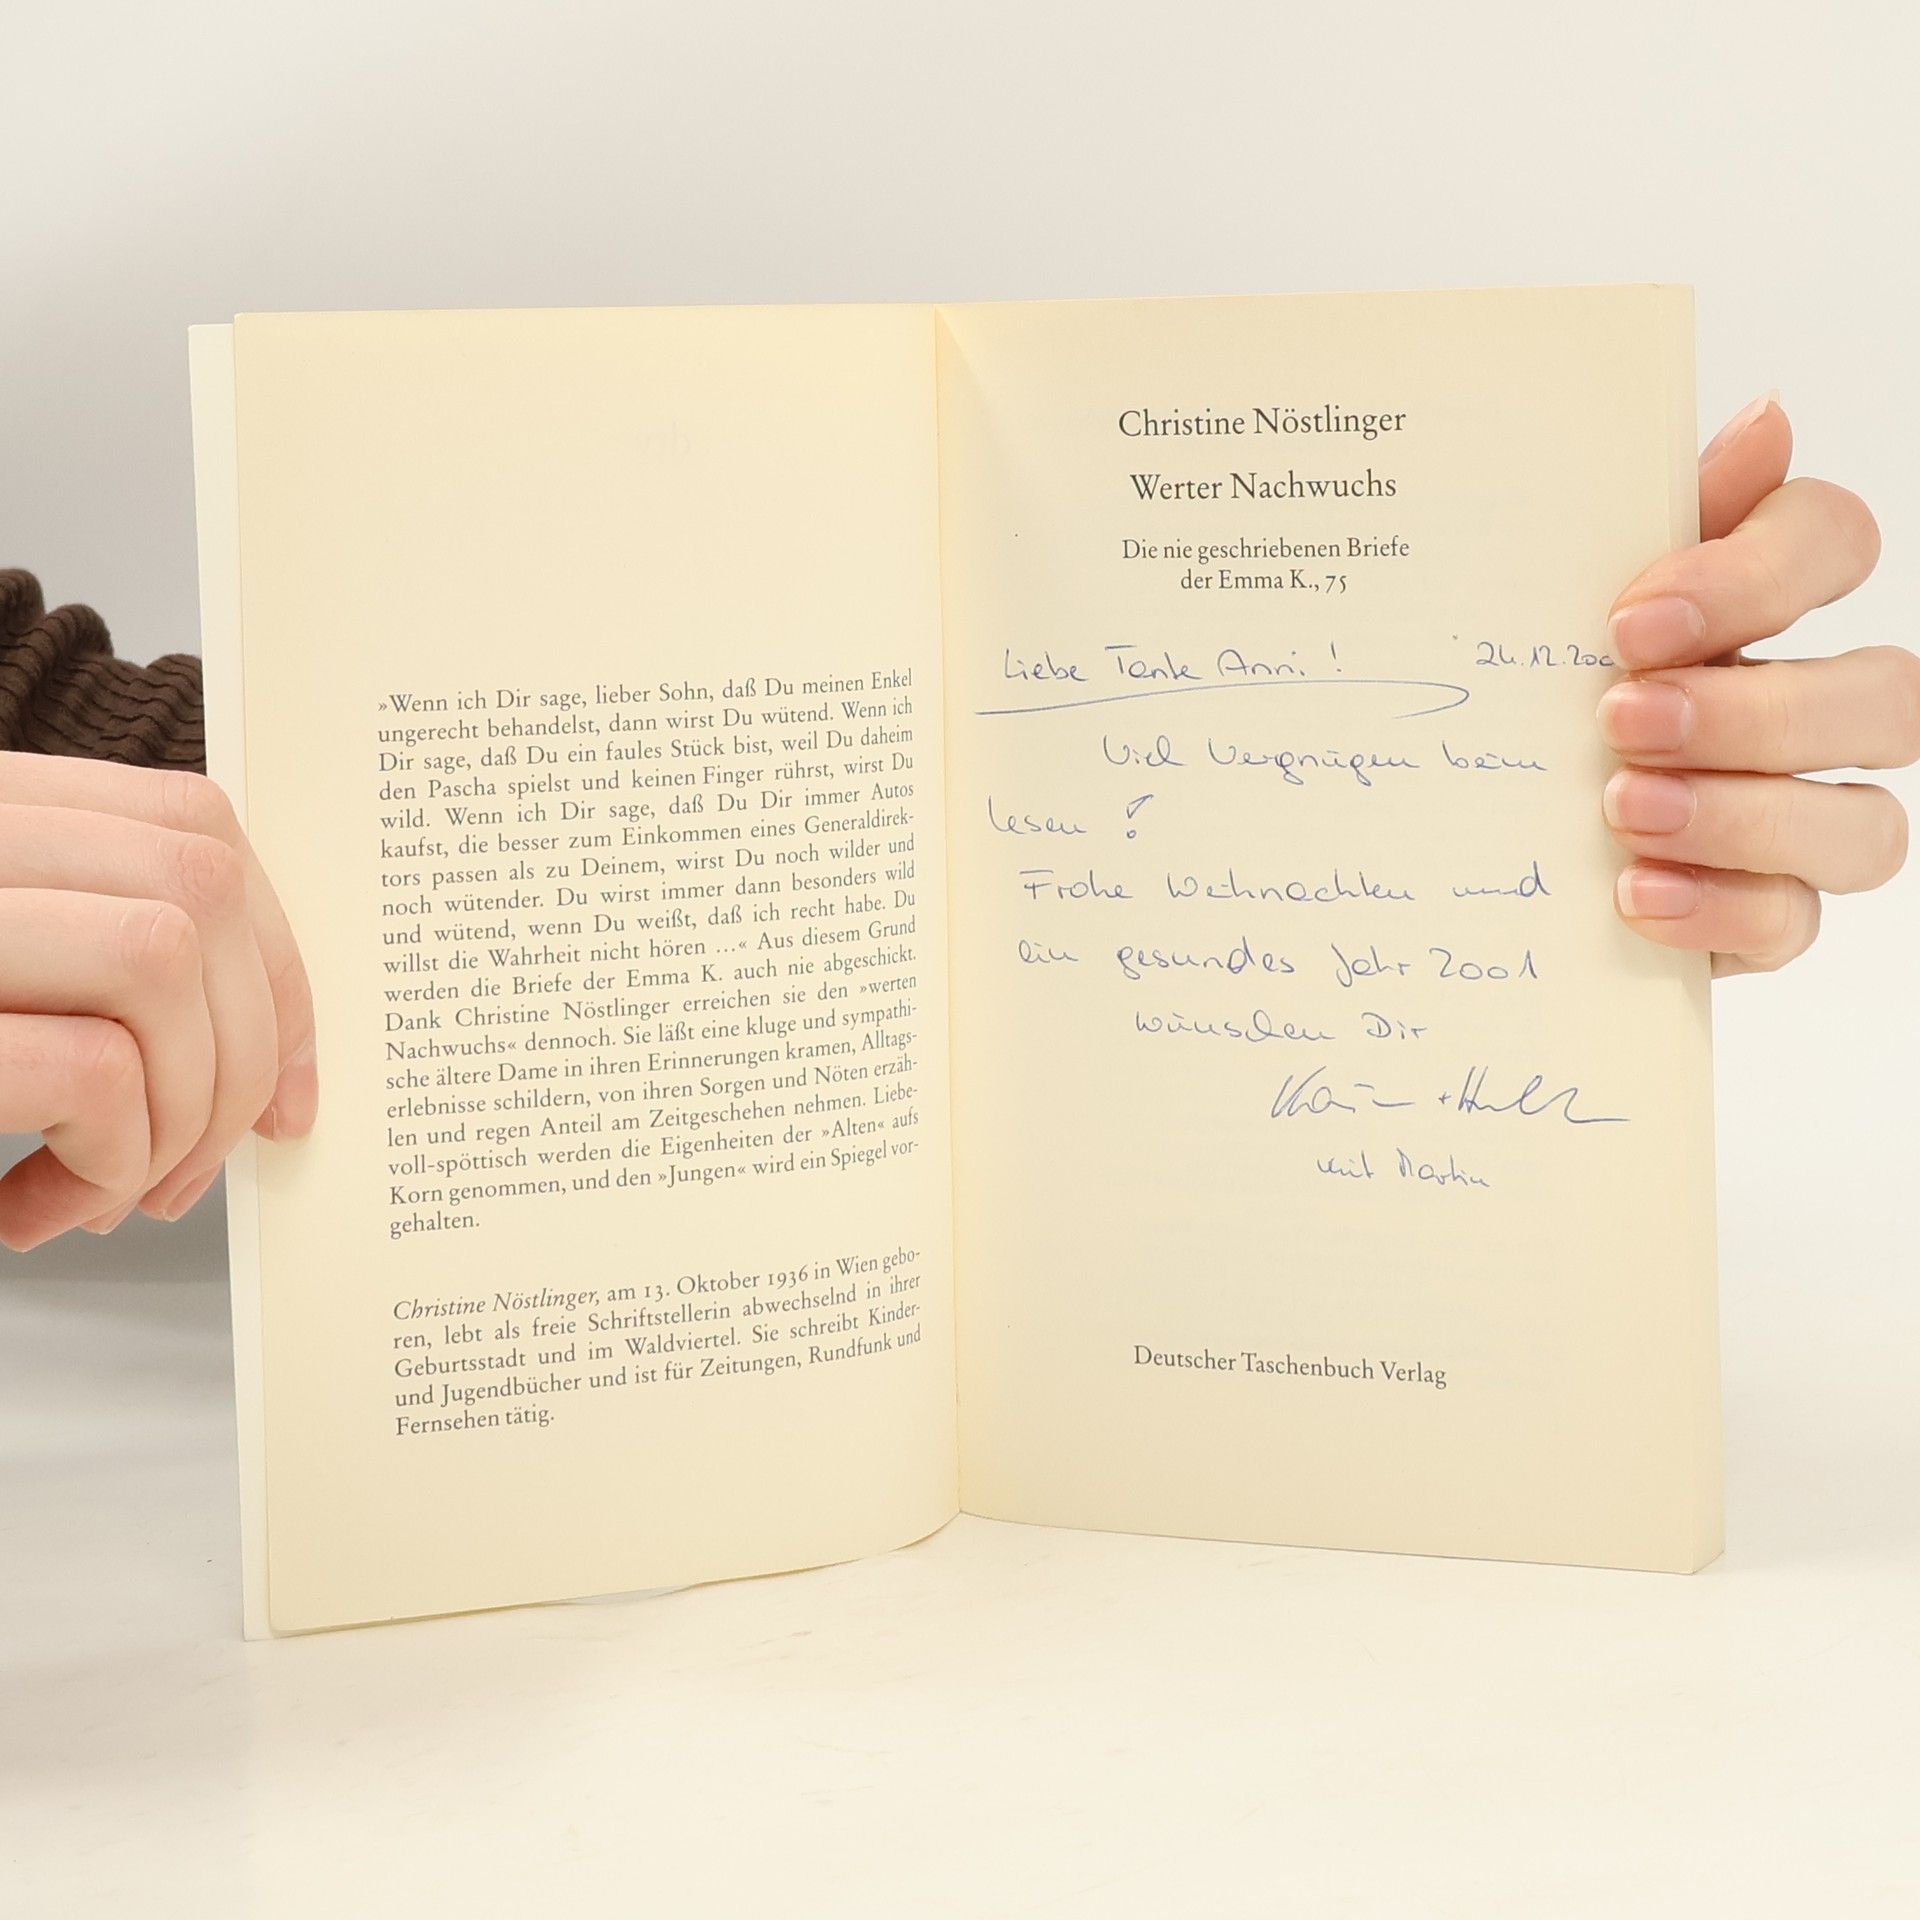 »Wenn ich Dir sage, lieber Sohn, daß Du meinen Enkel
ungerecht behandelst, dann wirst Du wütend. Wenn ich
Dir sage, daß Du ein faules Stück bist, weil Du daheim
den Pascha spielst und keinen Finger rührst, wirst Du
wild. Wenn ich Dir sage, daß Du Dir immer Autos
kaufst, die besser zum Einkommen eines Generaldirek-
tors passen als zu Deinem, wirst Du noch wilder und
noch wütender. Du wirst immer dann besonders wild
und wütend, wenn Du weißt, daß ich recht habe. Du
willst die Wahrheit nicht hören ...« Aus diesem Grund
werden die Briefe der Emma K. auch nie abgeschickt.
Dank Christine Nöstlinger erreichen sie den »werten
Nachwuchs« dennoch. Sie läßt eine kluge und sympathi-
sche ältere Dame in ihren Erinnerungen kramen, Alltags-
erlebnisse schildern, von ihren Sorgen und Nöten erzäh-
len und regen Anteil am Zeitgeschehen nehmen. Liebe-
voll-spöttisch werden die Eigenheiten der »Alten« aufs
Korn genommen, und den »Jungen« wird ein Spiegel vor-
gehalten.
Christine Nöstlinger, am 13. Oktober 1936 in Wien gebo-
ren, lebt als freie Schriftstellerin abwechselnd in ihrer
Geburtsstadt und im Waldviertel. Sie schreibt Kinder-
und Jugendbücher und ist für Zeitungen, Rundfunk und
Fernsehen tätig.
Christine Nöstlinger
Werter Nachwuchs
Die nie geschriebenen Briefe
der Emma K., 75
Liebe Tante Anni! 24.12.200
Viel Vergnügen beim
lesen!
Frohe Weihnachten und
ein gesundes Jahr 2001
wünschen Dir
mit Martin
Deutscher Taschenbuch Verlag